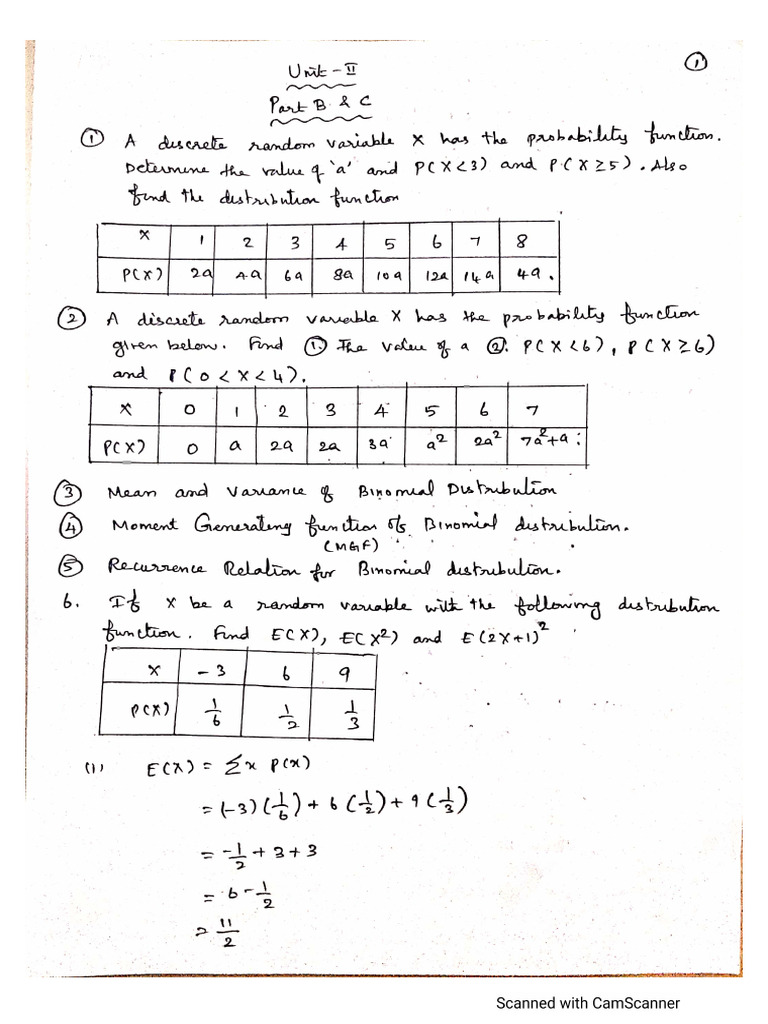 ①
Unit - II
Part B & C
① A discrete random variable X has the probability function.
Determine the value of 'a' and P(X<3) and P(X≥5). Also
find the distribution function
X 1 2 3 4 5 6 7 8
P(X) 2a 4a 6a 8a 10a 12a 14a 4a.
② A discrete random variable X has the probability function
given below. Find ①. The value of a ②. P(X<6), P(X≥6)
and P(0<X<4).
X 0 1 2 3 4 5 6 7
P(X) 0 a 2a 2a 3a a² 2a² 7a²+a
③ Mean and Variance of Binomial Distribution
④ Moment Generating function of Binomial distribution.
(MGF)
⑤ Recurrence Relation for Binomial distribution.
6. If X be a random variable with the following distribution
function. Find E(X), E(X²) and E(2X+1)²
X -3 6 9
P(X) 1/6 1/2 1/3
(1) E(X) = Σx P(x)
= (-3)(1/6) + 6(1/2) + 9(1/3)
= -1/2 + 3 + 3
= 6 - 1/2
= 11/2
Scanned with CamScanner